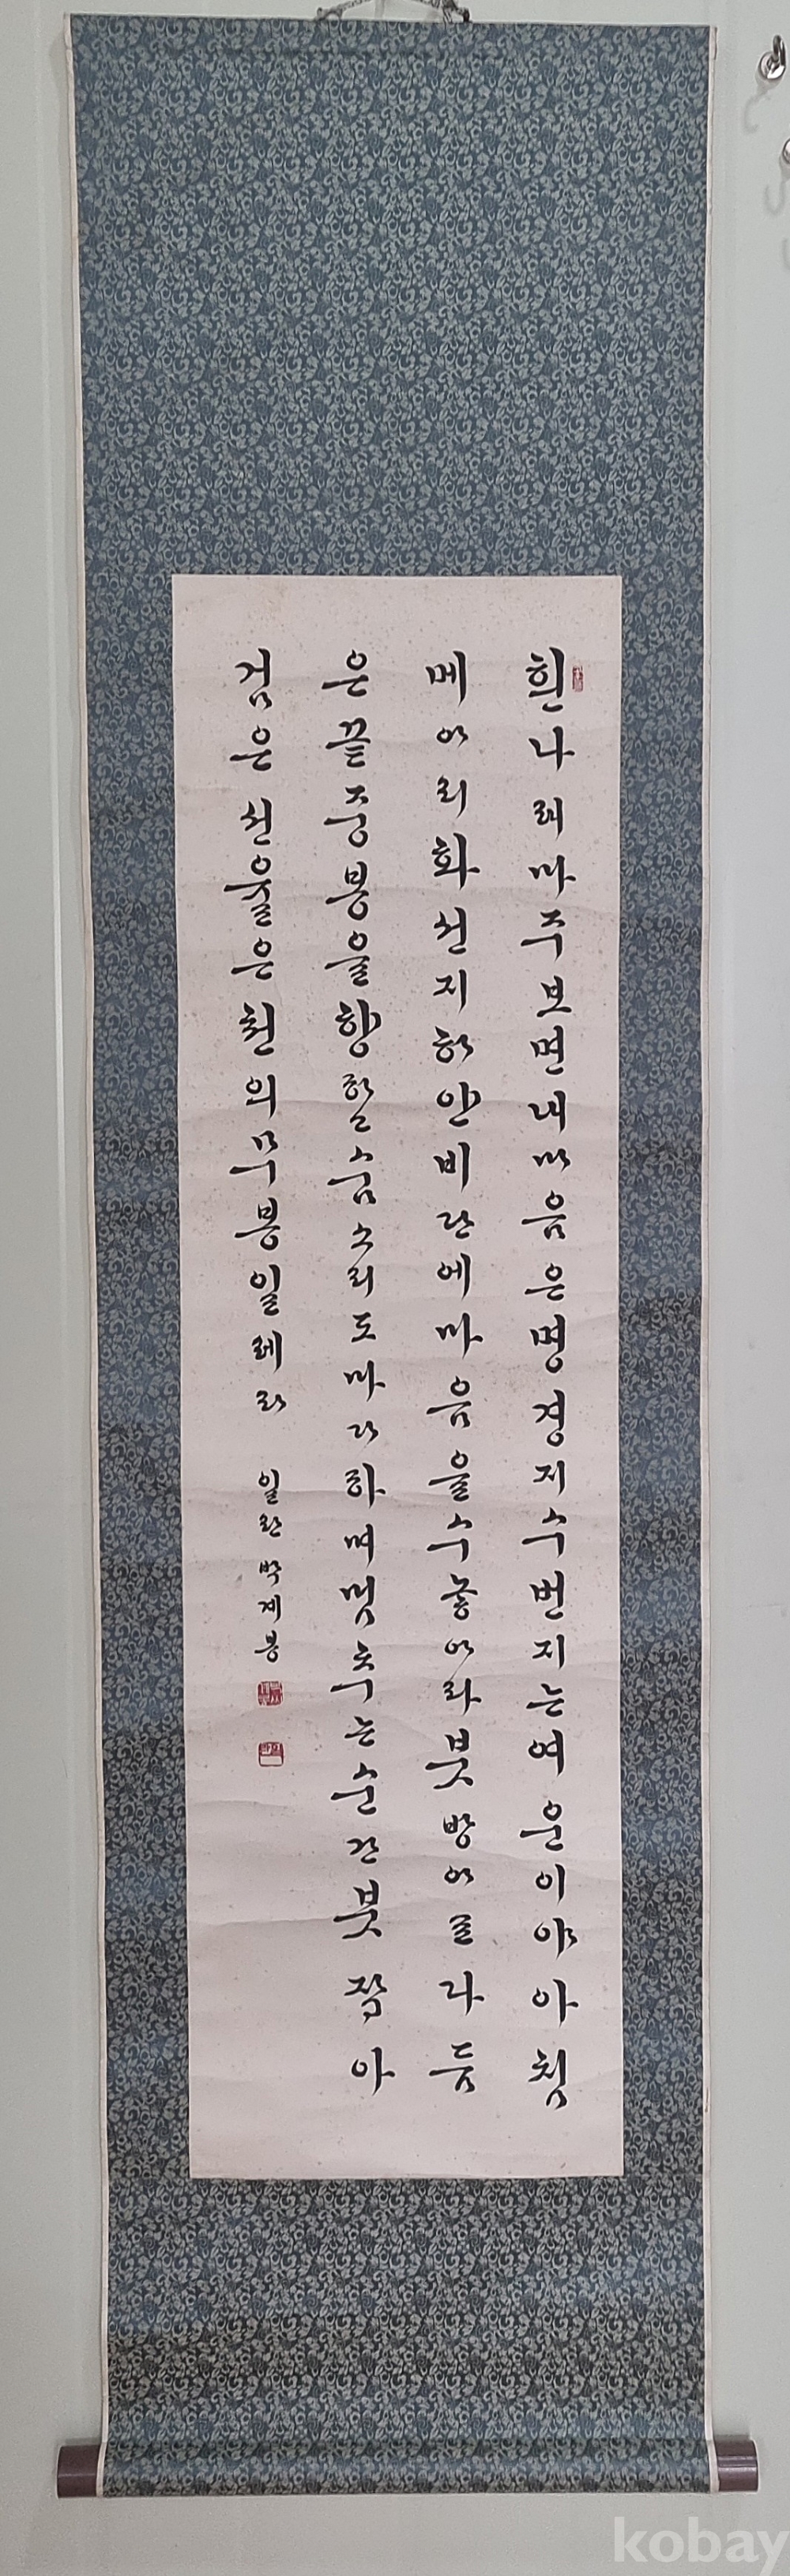 흰나래마주보면내마음은명경지수번지는여운이야아침
메아리화선지하얀비단에마음을수놓아라붓방아를다듬
은끝중봉을향한숨소리도마다하며멈추는순간붓잡아
검은선율은천의무봉일레라 일란 박계봉
kobay